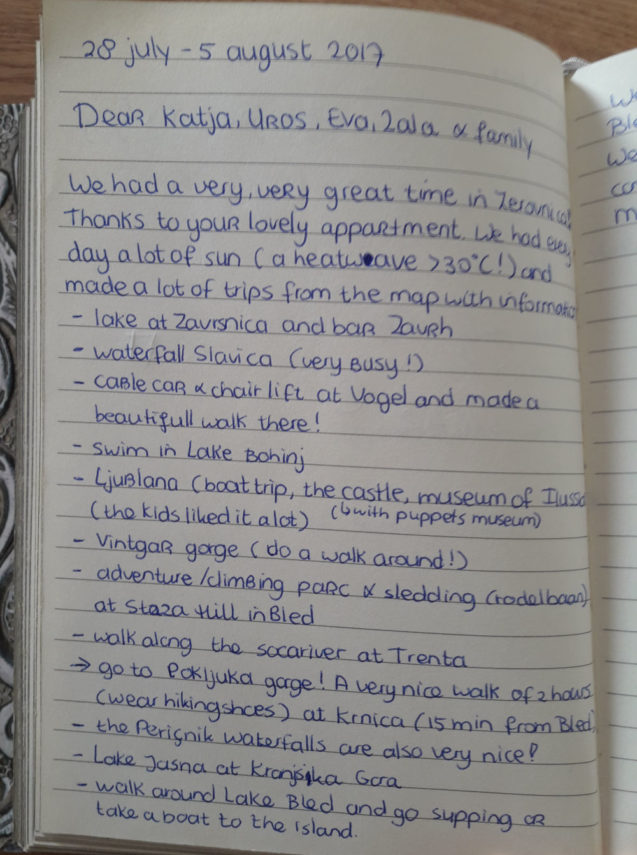 28 july - 5 august 2017
Dear Katja, Uros, Eva, Zala & family
We had a very, very great time in Zerovnica!
Thanks to your lovely appartment. We had every
day a lot of sun (a heatweave >30°C!) and
made a lot of trips from the map with informatio
- lake at Zavrsnica and bar Zavrh
- waterfall Slavica (very busy!)
- cable car & chair lift at Vogel and made a
beautifull walk there!
- swim in Lake Bohinj
- Ljublana (boat trip, the castle, museum of Ilusio
(the kids liked it a lot) (↳ with puppets museum)
- Vintgar gorge (do a walk around!)
- adventure/climbing parc & sledding (rodelbaan)
at Staza Hill in Bled
- walk along the socariver at Trenta
→ go to Pokljuka gorge! A very nice walk of 2 hours
(wear hikingshoes) at Krnica (15 min from Bled)
- the Perićnik waterfalls are also very nice!
- Lake Jasna at Kranjska Gora
- walk around Lake Bled and go supping or
take a boat to the island.
We
co
m